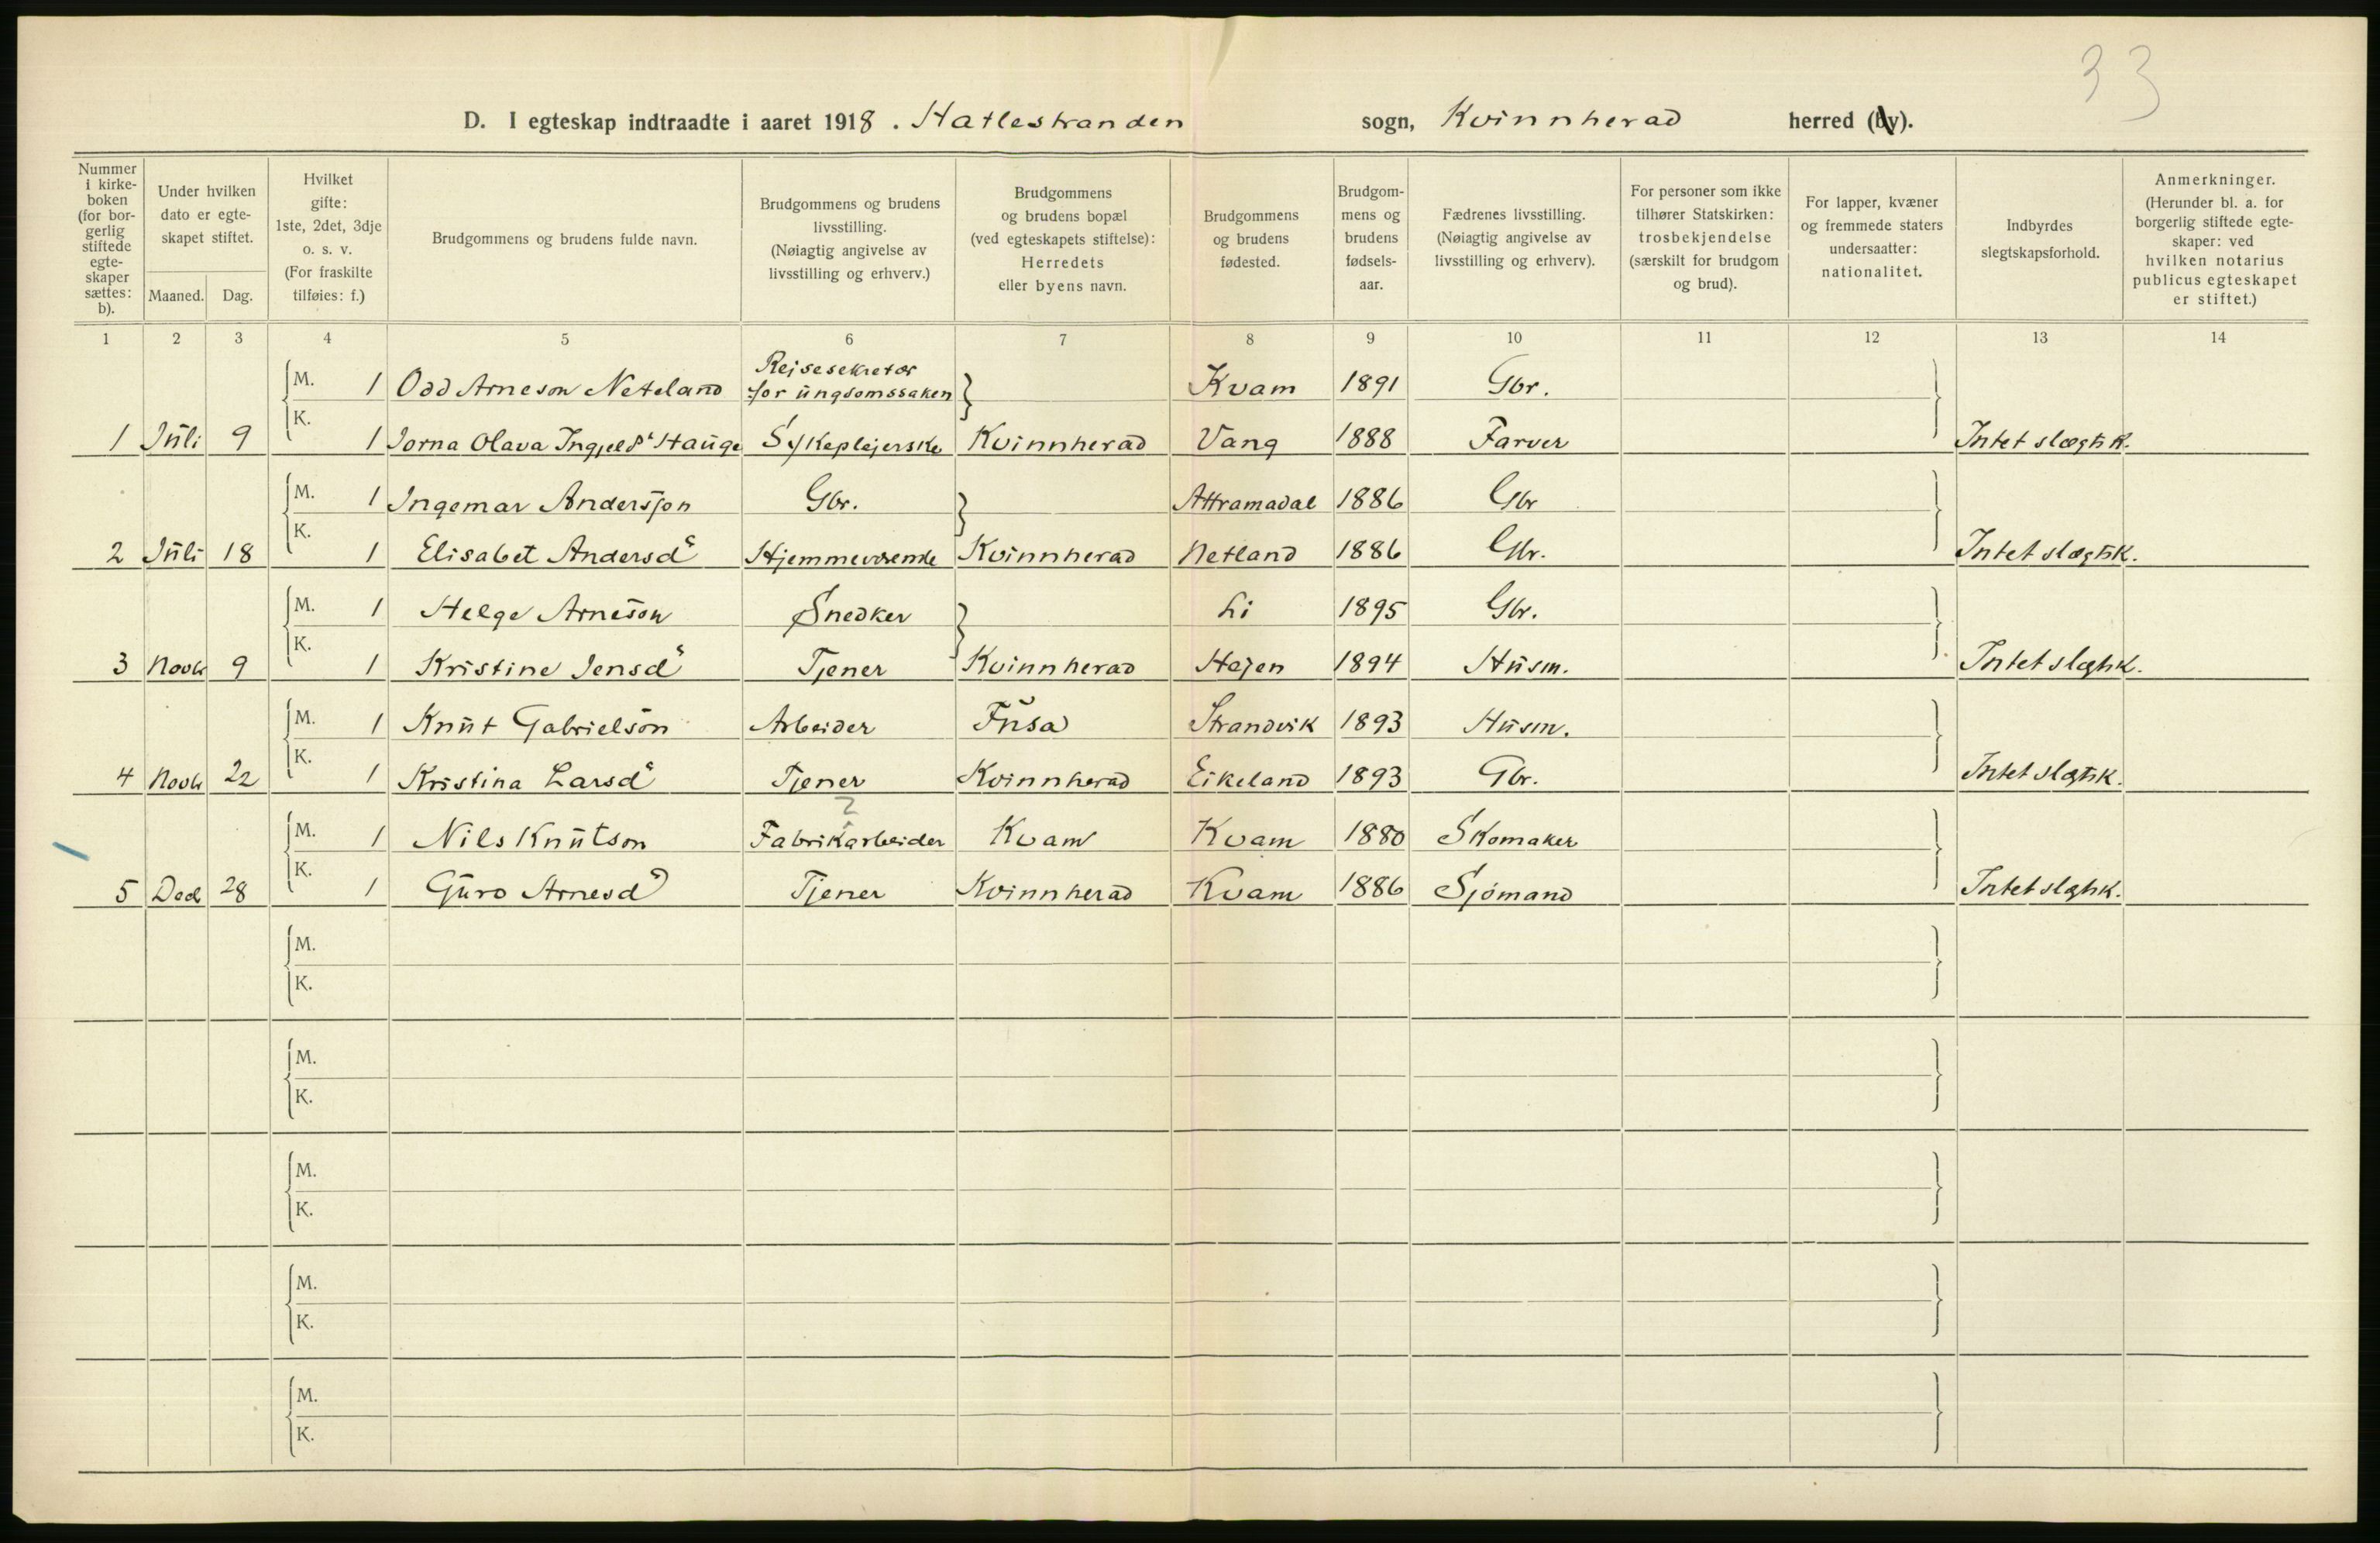 33
D. I egteskap indtraadte i aaret 1918. Hatlestranden sogn, Kvinnherad herred (by).
Nummer i kirkeboken (for borgerlig stiftede egteskaper sættes: b).
Under hvilken dato er egteskapet stiftet.
Maaned. Dag.
Hvilket gifte: 1ste, 2det, 3dje o. s. v. (For fraskilte tilføies: f.)
Brudgommens og brudens fulde navn.
Brudgommens og brudens livsstilling. (Nøiagtig angivelse av livsstilling og erhverv.)
Brudgommens og brudens bopæl (ved egteskapets stiftelse): Herredets eller byens navn.
Brudgommens og brudens fødested.
Brudgommens og brudens fødselsaar.
Fædrenes livsstilling. (Nøiagtig angivelse av livsstilling og erhverv).
For personer som ikke tilhører Statskirken: trosbekjendelse (særskilt for brudgom og brud).
For lapper, kvæner og fremmede staters undersaatter: nationalitet.
Indbyrdes slegtskapsforhold.
Anmerkninger. (Herunder bl. a. for borgerlig stiftede egteskaper: ved hvilken notarius publicus egteskapet er stiftet.)
1 2 3 4 5 6 7 8 9 10 11 12 13 14
M. 1 Odd Arneson Neteland Rejsesekretær for ungdomssaken Kvam 1891 Gbr.
1 Juli 9 K. 1 Jorna Olava Ingjeldd Hauge Sykeplejerske Kvinnherad Vang 1888 Farver Intet slægtsk.
M. 1 Ingemar Andersson Gbr. Attramadal 1886 Gbr
2 Juli 18 K. 1 Elisabet Andersd Hjemmeværende Kvinnherad Netland 1886 Gbr. Intet slægtsk.
M. 1 Helge Arneson Snedker Li 1895 Gbr.
3 Novb 9 K. 1 Kristine Jensd Tjener Kvinnherad Hajen 1894 Husm. Intet slægtsk.
M. 1 Knut Gabrielson Arbeider Fusa Strandvik 1893 Husm.
4 Novb 22 K. 1 Kristina Larsd Tjener Kvinnherad Eikeland 1893 Gbr. Intet slægtsk.
M. 1 Nils Knutson Fabrikarbeider Kvam Kvam 1880 Skomaker
5 Deb 28 K. 1 Guro Arnesd Tjener Kvinnherad Kvam 1886 Sjömand Intet slægtsk.
M.
K.
M.
K.
M.
K.
M.
K.
M.
K.